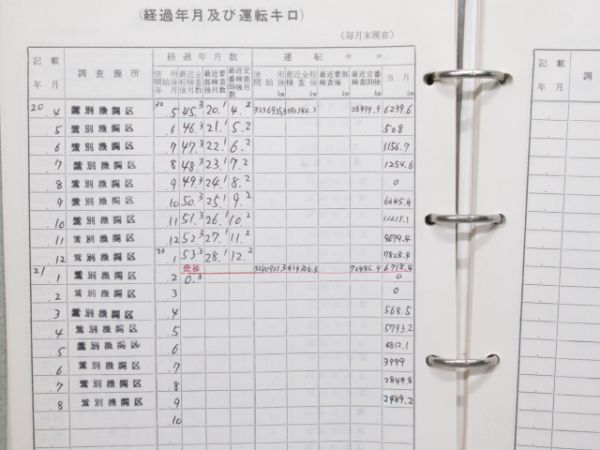 (経過年月及び運転キロ)
(毎月末現在)
記載年月 調査箇所 経過年月数 運転キロ
使用開始後年月 最近全般検査後月数 最近要部検査後月数 最近交番検査後月数 使用開始後km 最近全般検査後km 最近要部検査後km 最近交番検査後km 当月km
20. 4 鷲別機関区 32.5 45.3 20.1 4.2 6239.6
5 鷲別機関区 6 46.3 21.1 5.2 508
6 鷲別機関区 7 47.3 22.1 6.2 1156.7
7 鷲別機関区 8 48.3 23.1 7.2 1254.6
8 鷲別機関区 9 49.3 24.1 8.2 0
9 鷲別機関区 10 50.3 25.1 9.2 6645.4
10 鷲別機関区 11 51.3 26.1 10.2
11 鷲別機関区 12 52.3 27.1 11.2 8679.4
12 鷲別機関区 33.1 53.3 28.1 12.2 7808.4
全検 92485.9 6718.4
21. 1 鷲別機関区 2 0.3 0
2 鷲別機関区 3 0
3 鷲別機関区 4 568.5
4 鷲別機関区 5 5793.2
5 鷲別機関区 6 4812.1
6 鷲別機関区 7 3999
7 鷲別機関区 8 2849.8
8 鷲別機関区 9 2489.2
10
記載年月 調